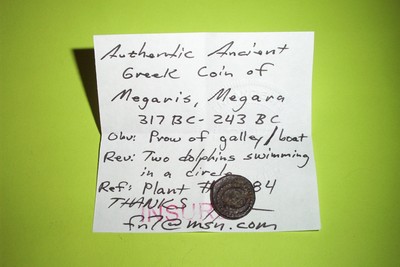 Authentic Ancient
Greek Coin of
Megaris, Megara
317 BC - 243 BC
Obv: Prow of galley/boat
Rev: Two dolphins swimming
in a circle
Ref: Plant 84
THANKS
fn7@msn.com